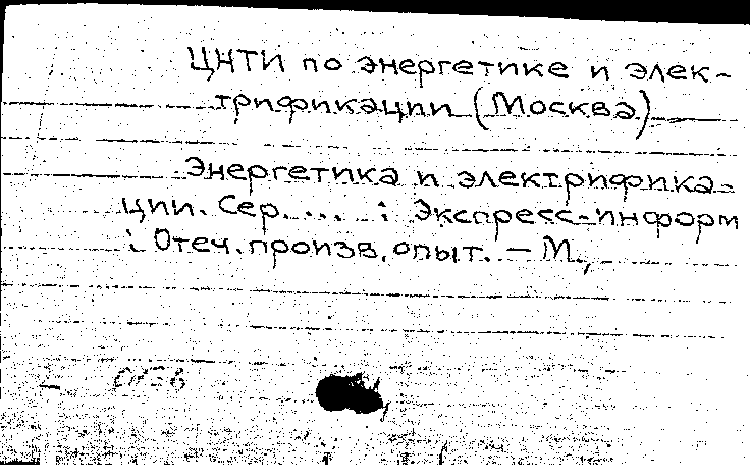 ЦНТИ по энергетике и элек-
трификации (Москва)
Энергетика и электрифика-
ции. Сер. ... : Экспресс-информ
: Отеч. произв. опыт. – М.,